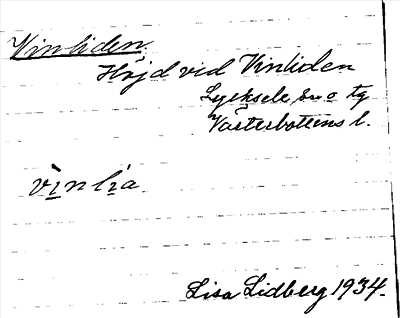 Vinliden.
Höjd vid Vinliden
Lycksele sn o tg
Västerbottens l.
vìnlìa.
Lisa Lidberg 1934.